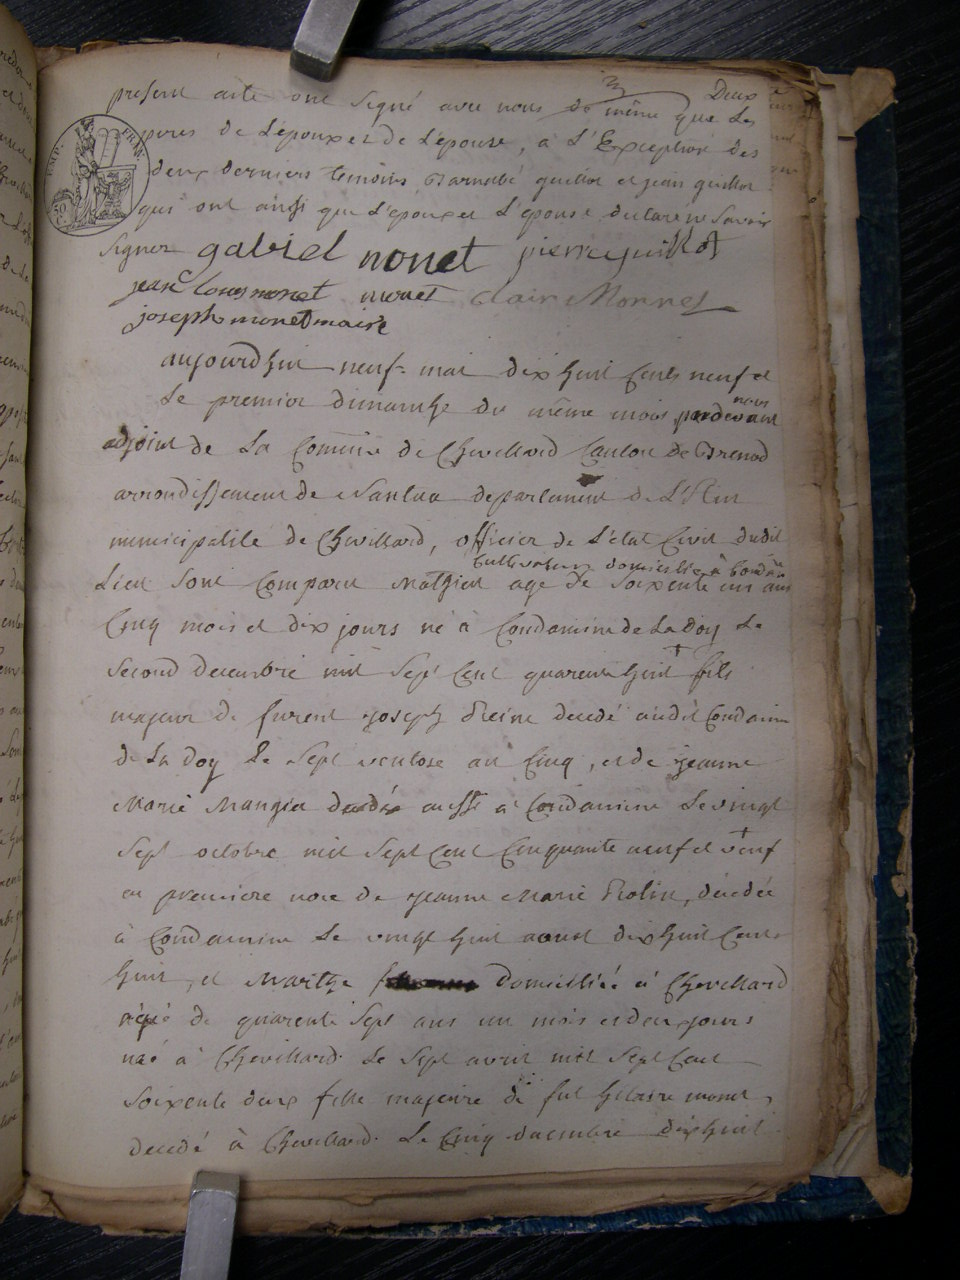 Deux
present acte ont signé avec nous de même que Les
peres de L'époux et de L'épouse, a L'Exception des
EMP. FRAN.
deux derniers temoins, Barnabé guillot et jean guillot
50 C.
qui ont ainsi que L'epoux et L'épouse declaré ne savoir
signer gabriel nonet pierre guillot
jean Louis monet monet clair Monnet
joseph monet maire
aujourdhui neuf mai dix huit Cents neuf et
Le premier dimanche du même mois pardevant nous
adjoint de La Commune de Chevillard Canton de Brenod
arrondissement de Nantua departement de L'Ain
municipalité de Chevillard, officier de L'état Civil dudit
cultivateur domicilié à Condamine
Lieu sont Comparu Mathieu agé de soixente un ans
Cinq mois et dix jours né à Condamine de La doy Le
second decembre mil sept Cent quarente huit fils
majeur de furent joseph Reine decedé audit Condamine
de La doy Le sept ventose an Cinq, et de jeanne
Marie Mangia decedée aussi à Condamine Le vingt
sept octobre mil sept Cent Cinquante neuf et veuf
en premiere noce de jeanne Marie Rolin, décédée
à Condamine Le vingt huit aoust dix huit Cent
huit, et Marthe domiciliée à Chevillard
agée de quarente sept ans un mois et deux jours
née à Chevillard Le sept avril mil sept Cent
soixente deux fille majeure de fut hilaire monet,
decedé à Chevillard Le Cinq decembre dix huit